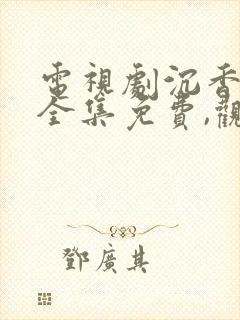 電視劇沉香
全集免費,觀
鄧廣其